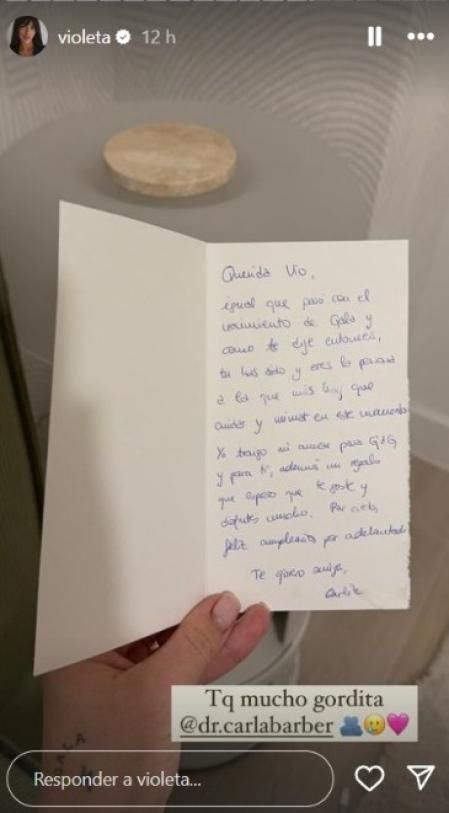 violeta 12 h
Querida Vio,
igual que pasó con el
nacimiento de Gala y
como te dije entonces,
tu has sido y eres la persona
a la que más hay que
cuidar y mimar en este momento
Yo traigo mi amor para G&G
y para ti, además un regalo
que espero que te guste y
disfrutes mucho. Por cierto,
feliz cumpleaños por adelantado
Te quiero amiga,
Tq mucho gordita
@dr.carlabarber
GALA
Responder a violeta...